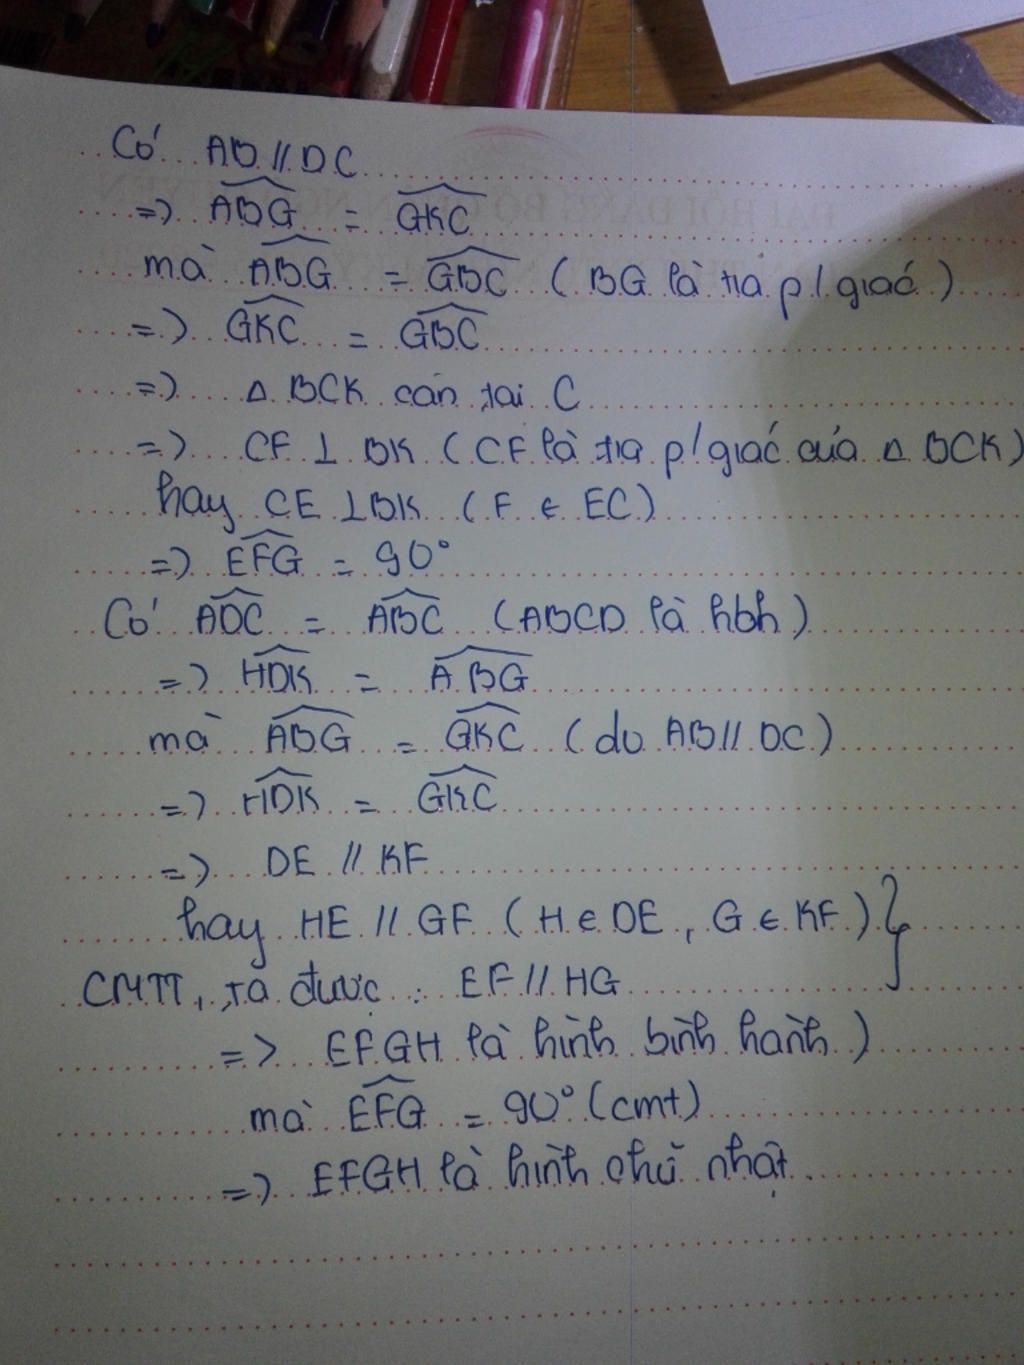 Có AB // DC
=> ABG = GKC
mà ABG = GBC (BG là tia p/giác)
=> GKC = GBC
=> Δ BCK cân tại C
=> CF ⊥ BK (CF là tia p/giác của Δ BCK)
hay CE ⊥ BK (F ∈ EC)
=> EFG = 90°
Có ADC = ABC (ABCD là hbh)
=> HDK = ABG
mà ABG = GKC (do AB // DC)
=> HDK = GKC
=> DE // KF
hay HE // GF (H ∈ DE, G ∈ KF) }
CMTT, ta được: EF // HG
=> EFGH là hình bình hành )
mà EFG = 90° (cmt)
=> EFGH là hình chữ nhật.